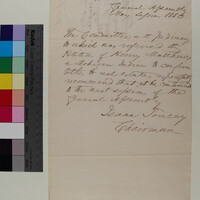 General Assembly
May Session 1853
The Committee on the Judiciary
to which was referred the
Petition of Henry Matthews
a Mohegan Indian to confirm
title to real estate, respectfully
recommend that it be continued
to the next session of the
General Assembly
Isaac
Chairman